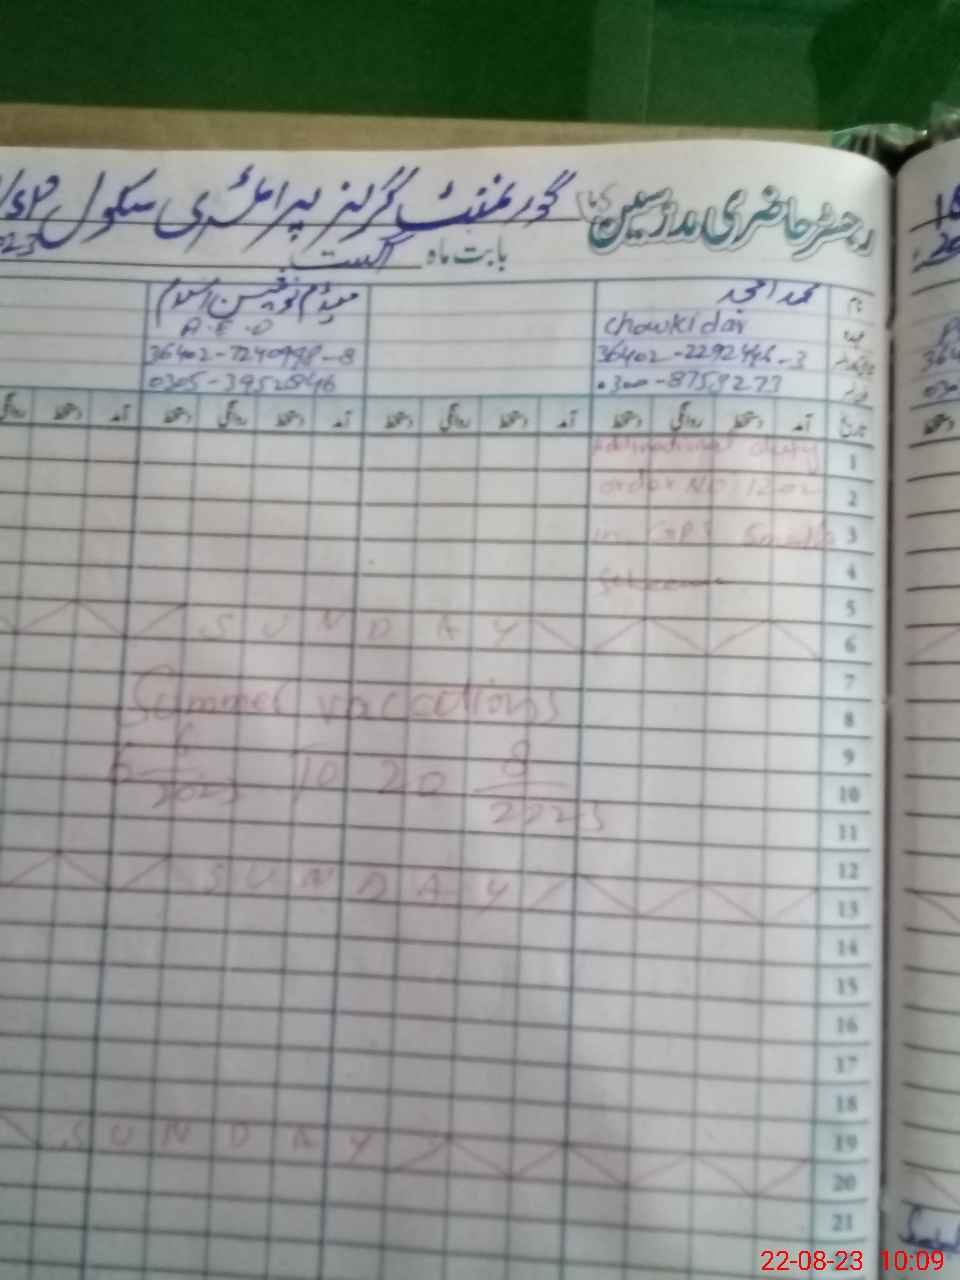 رجسٹر حاضری مدرسین گورنمنٹ گرلز پرائمری سکول
بابت ماہ اگست
نام محمد امجد میڈم نوشین اسلم
عہدہ Chowkidar A.E.O
36402-2292446-3 36402-7240998-8
0300-8759273 0305-3952846
تاریخ آمد دستخط روانگی دستخط آمد دستخط روانگی دستخط آمد دستخط روانگی دستخط آمد دستخط روانگی
1 duty
2 order NO 1202
3 in
4
5
6 SUNDAY
7
8 Summer vaccations
9
10 6 6/2023 To 20 8/2023
11
12
13 SUNDAY
14
15
16
17
18
19
20 SUNDAY
21
22-08-23 10:09